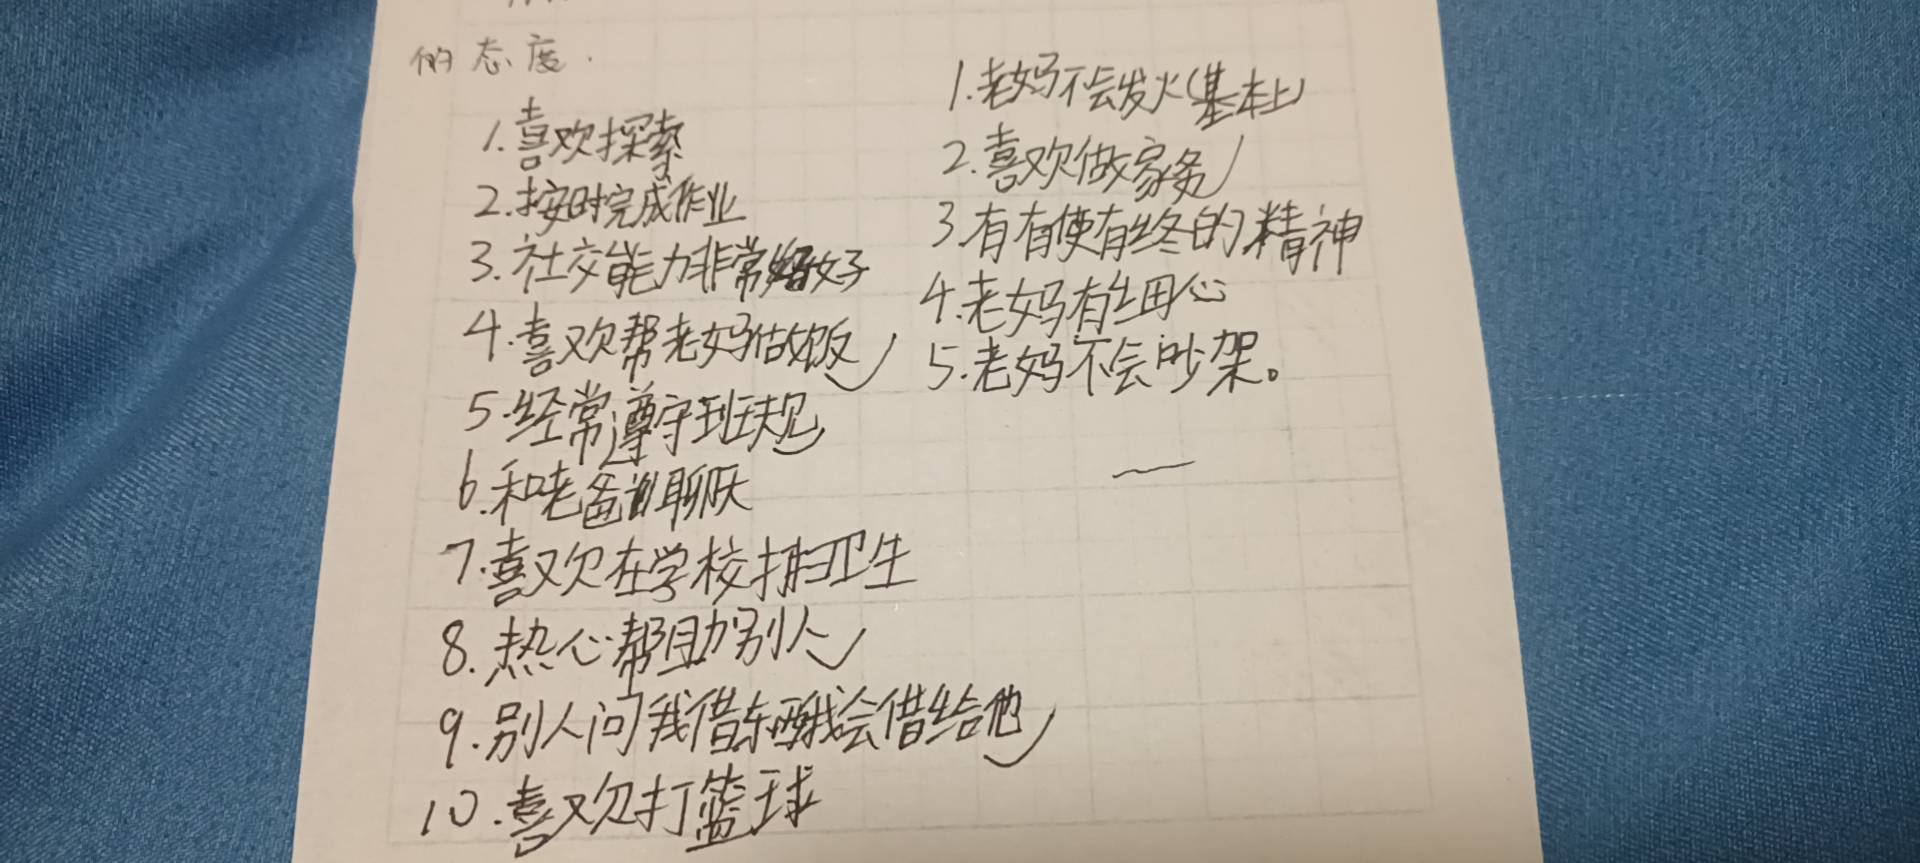 的态度.
1.喜欢探索
2.按时完成作业
3.社交能力非常好
4.喜欢帮老妈做饭
5.经常遵守班规
6.和老爸聊天
7.喜欢在学校打扫卫生
8.热心帮助别人
9.别人问我借东西我会借给他
10.喜欢打篮球
1.老妈不会发火(基本上)
2.喜欢做家务
3.有有使有终的精神
4.老妈有细心
5.老妈不会吵架。